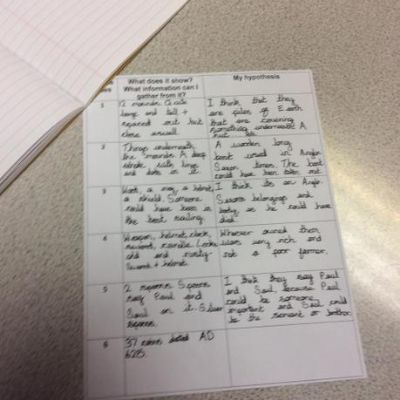 What does it show?
What information can I
gather from it?
My hypothesis
1
A mounds Quite
large and tall +
spread out but
close as well.
I think that they
are piles of Earth
that are covering
something underneath A
2
Things underneath
the mounds A deep
and dots on it.
A wooden long
boat used in Anglo
Saxon times. The boat
could have been taken out
3
a shield. Someone
could have been in
the boat sailing.
I think its an Anglo
Saxons belongings and
body as he could have
died
4
Weapon, helmet,
old and rusty
Sword + helmet.
Whoever owned them
was very rich and
not a poor farmer.
5
2 spoons Spoons
say Paul and
Saul on it. Silver
spoons.
I think they say Paul
and Saul, because Paul
could be someone
important and Saul could
be the servant or brother
6
37 coins dated AD
625.